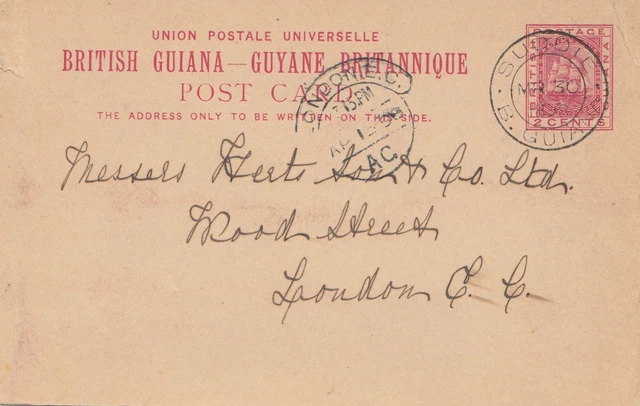 UNION POSTALE UNIVERSELLE
BRITISH GUIANA—GUYANE BRITANNIQUE
POST CARD
THE ADDRESS ONLY TO BE WRITTEN ON THIS SIDE.
POSTAGE
2 CENTS
MR 30
B. GUIANA
LONDON E.C.
15 PM
AP
A.C.
Messers Herts Son & Co. Ltd.
Wood Street
London E. C.